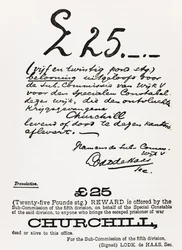 £ 25.—.—
(vijf en twintig pond stg)
belooning uitgeloofd door
de Sub. Commissie van Wijk V
voor den Specialen Constabel
dezer wijk, die den ontvluchte
Krijgsgevangene
Churchill
levend of dood te dezen kantore
aflevert. —
Namens de Sub. Comm.
Wijk V
Lodk de Haas
Sec.
Translation.
£25
(Twenty-five Pounds stg.) REWARD is offered by the
Sub-Commission of the fifth division, on behalf of the Special Constable
of the said division, to anyone who brings the escaped prisoner of war
CHURCHILL,
dead or alive to this office.
For the Sub-Commission of the fifth division.
(Signed) LODK. de HAAS, Sec.